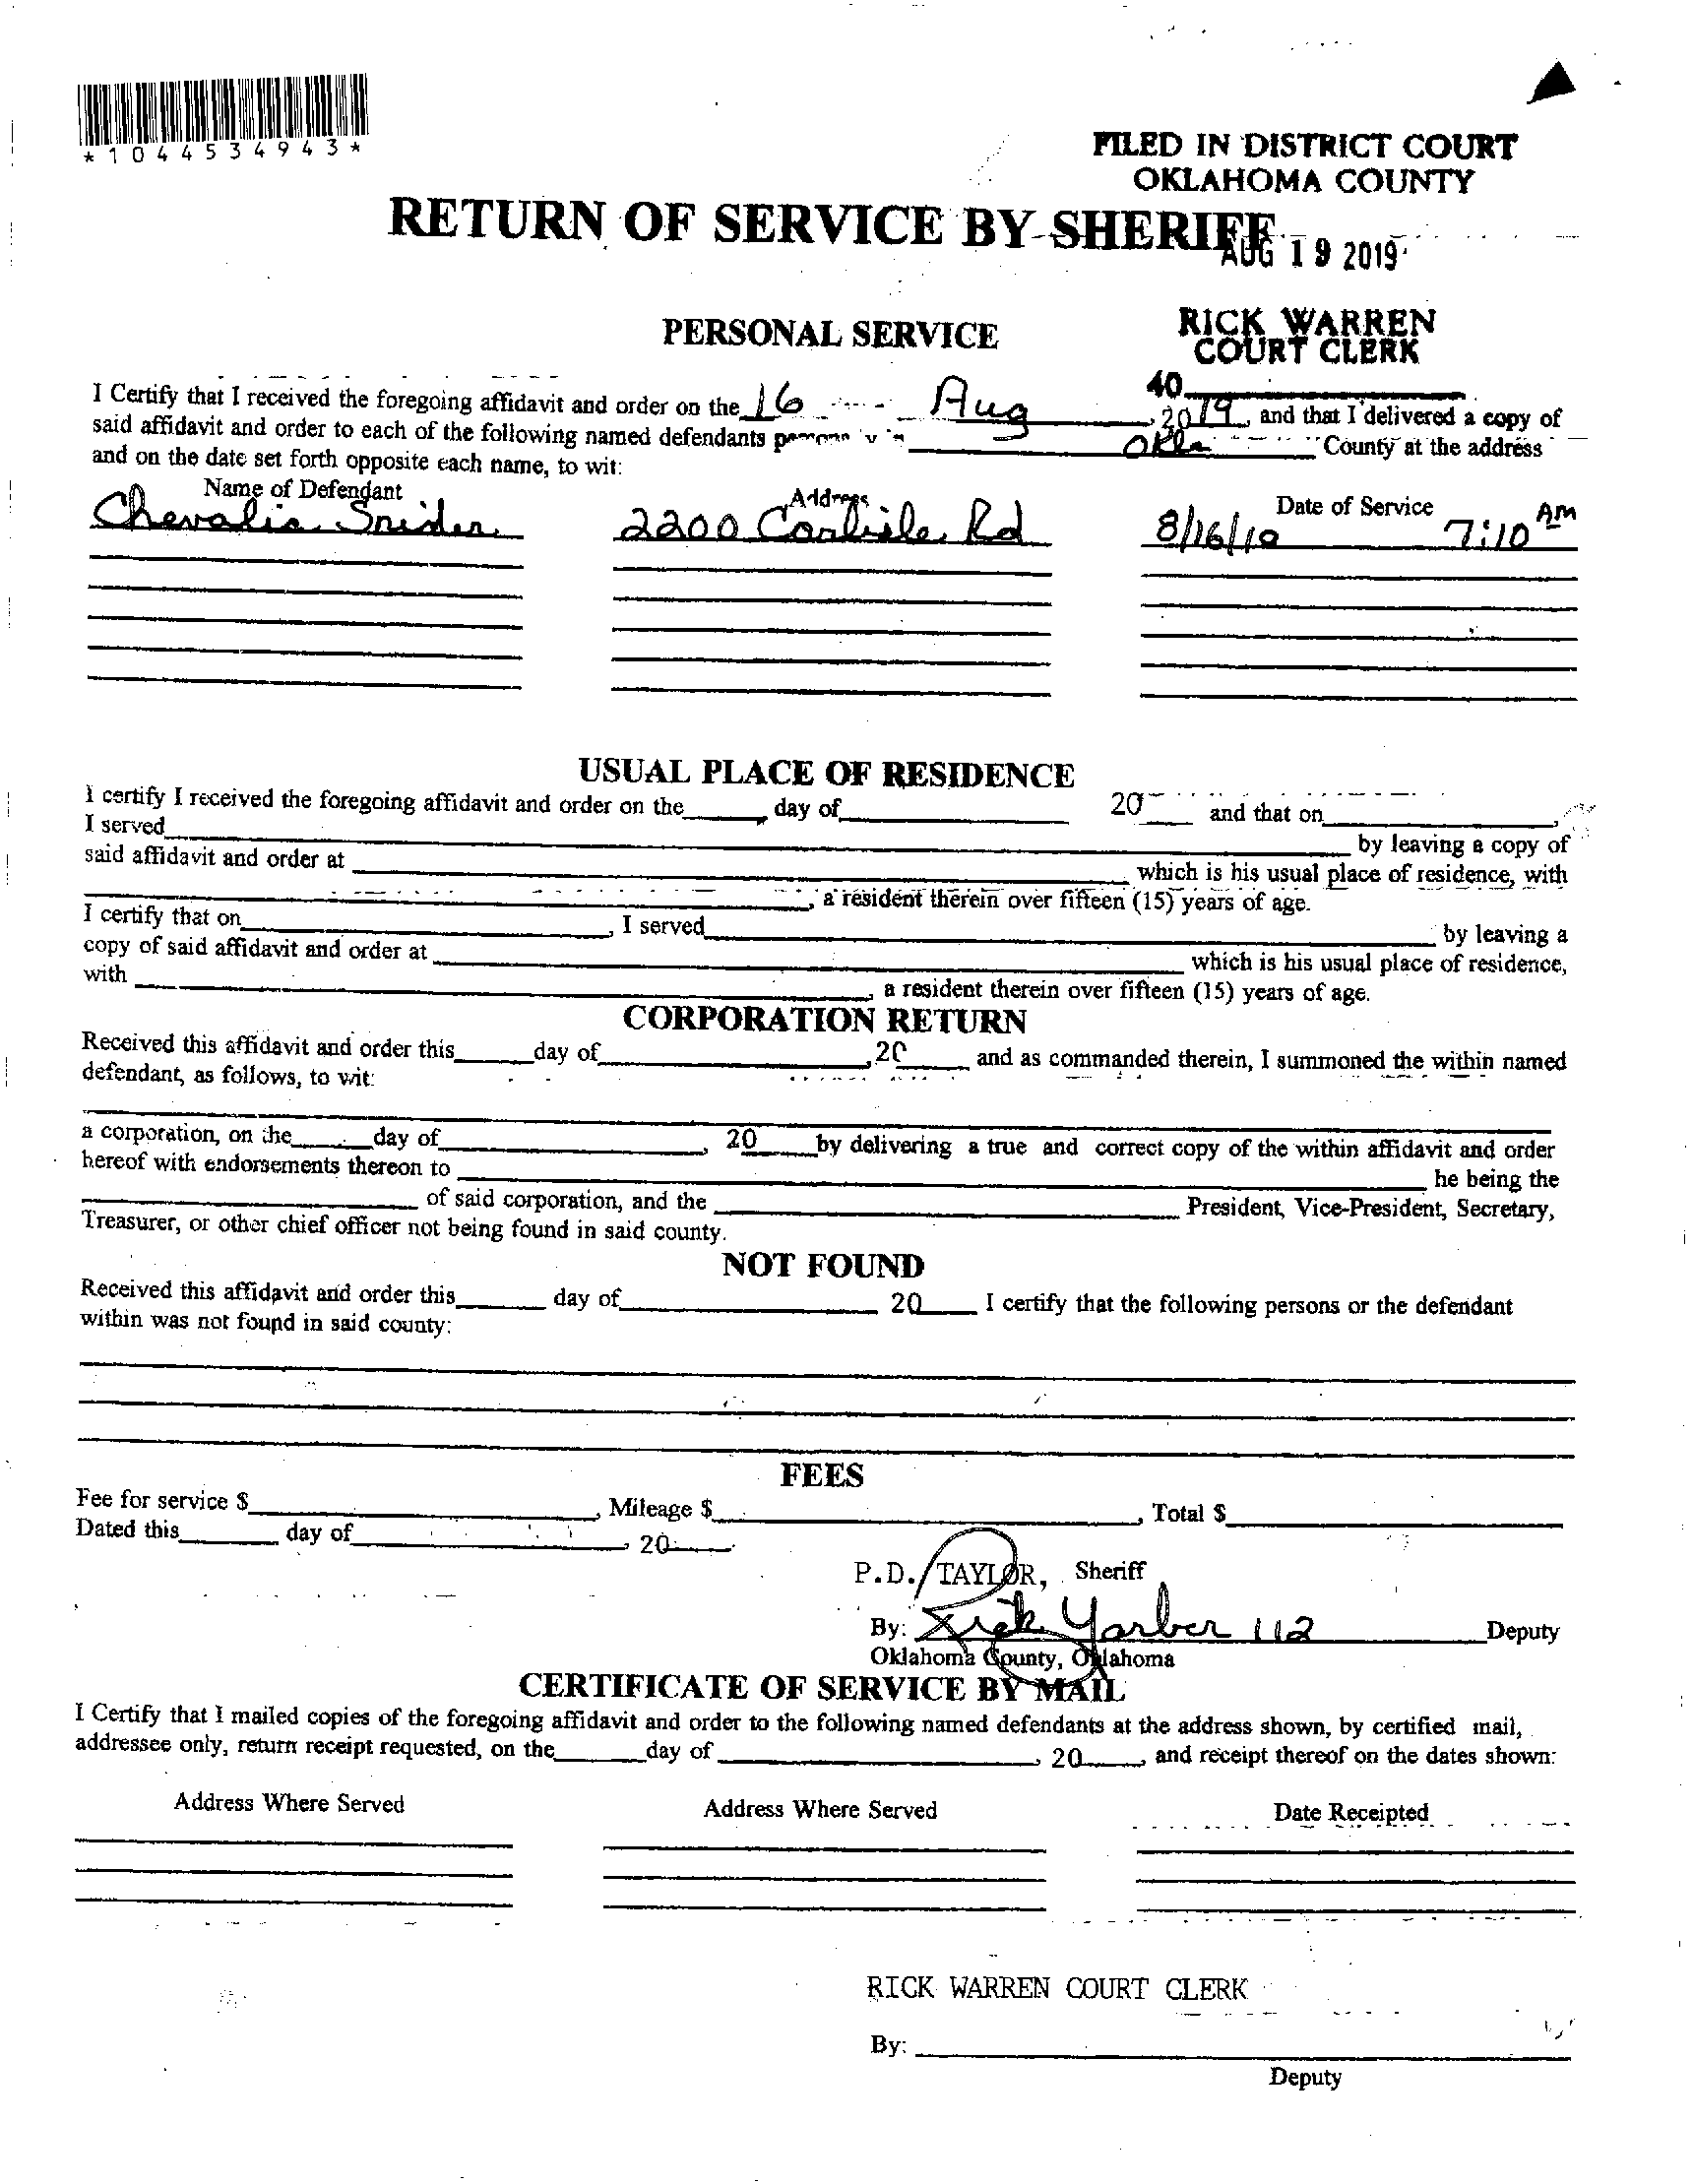 *1044534943*
FILED IN DISTRICT COURT
OKLAHOMA COUNTY
RETURN OF SERVICE BY SHERIFF
AUG 19 2019
PERSONAL SERVICE
RICK WARREN
COURT CLERK
40
I Certify that I received the foregoing affidavit and order on the 16 Aug, 2019, and that I delivered a copy of
said affidavit and order to each of the following named defendants in Okla County at the address
and on the date set forth opposite each name, to wit:
Name of Defendant Address Date of Service
Chevalia Snider 2200 Carlisle Rd 8/16/19 7:10 AM
USUAL PLACE OF RESIDENCE
I certify I received the foregoing affidavit and order on the____, day of____ 20____ and that on____,
I served____ by leaving a copy of
said affidavit and order at ____ which is his usual place of residence, with
____, a resident therein over fifteen (15) years of age.
I certify that on____, I served____ by leaving a
copy of said affidavit and order at ____ which is his usual place of residence,
with ____, a resident therein over fifteen (15) years of age.
CORPORATION RETURN
Received this affidavit and order this____day of____, 20____ and as commanded therein, I summoned the within named
defendant, as follows, to wit:
a corporation, on the____day of____, 20____by delivering a true and correct copy of the within affidavit and order
hereof with endorsements thereon to ____ he being the
____ of said corporation, and the ____ President, Vice-President, Secretary,
Treasurer, or other chief officer not being found in said county.
NOT FOUND
Received this affidavit and order this____ day of____ 20____ I certify that the following persons or the defendant
within was not found in said county:
FEES
Fee for service $____, Mileage $____, Total $____
Dated this____ day of____, 20____
P.D. TAYLOR, Sheriff
By: Rick Yarber 112 Deputy
Oklahoma County, Oklahoma
CERTIFICATE OF SERVICE BY MAIL
I Certify that I mailed copies of the foregoing affidavit and order to the following named defendants at the address shown, by certified mail,
addressee only, return receipt requested, on the____day of ____, 20____, and receipt thereof on the dates shown:
Address Where Served Address Where Served Date Receipted
RICK WARREN COURT CLERK
By: ____
Deputy